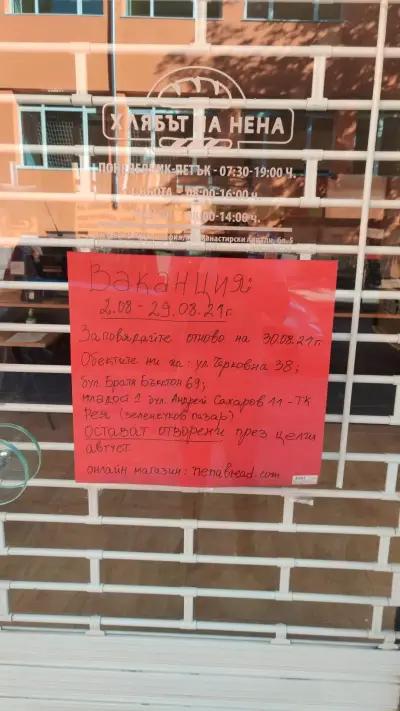 ХЛЯБЪТ НА НЕНА
ПОНЕДЕЛНИК-ПЕТЪК - 07:30-19:00 Ч.
СЪБОТА - 08:00-16:00 ч.
00-14:00 ч.
Манастирски Ливади, бл. 5
Ваканция:
2.08 - 29.08.21г.
Заповядайте отново на 30.08.21г.
Обектите ни на: ул. Църковна 38;
бул. Братя Бъкстон 69;
младост 1 бул. Андрей Сахаров 11 - ТК
Рея (зеленчуков пазар)
остават отворени през целия
август
онлайн магазин: nenabread.com